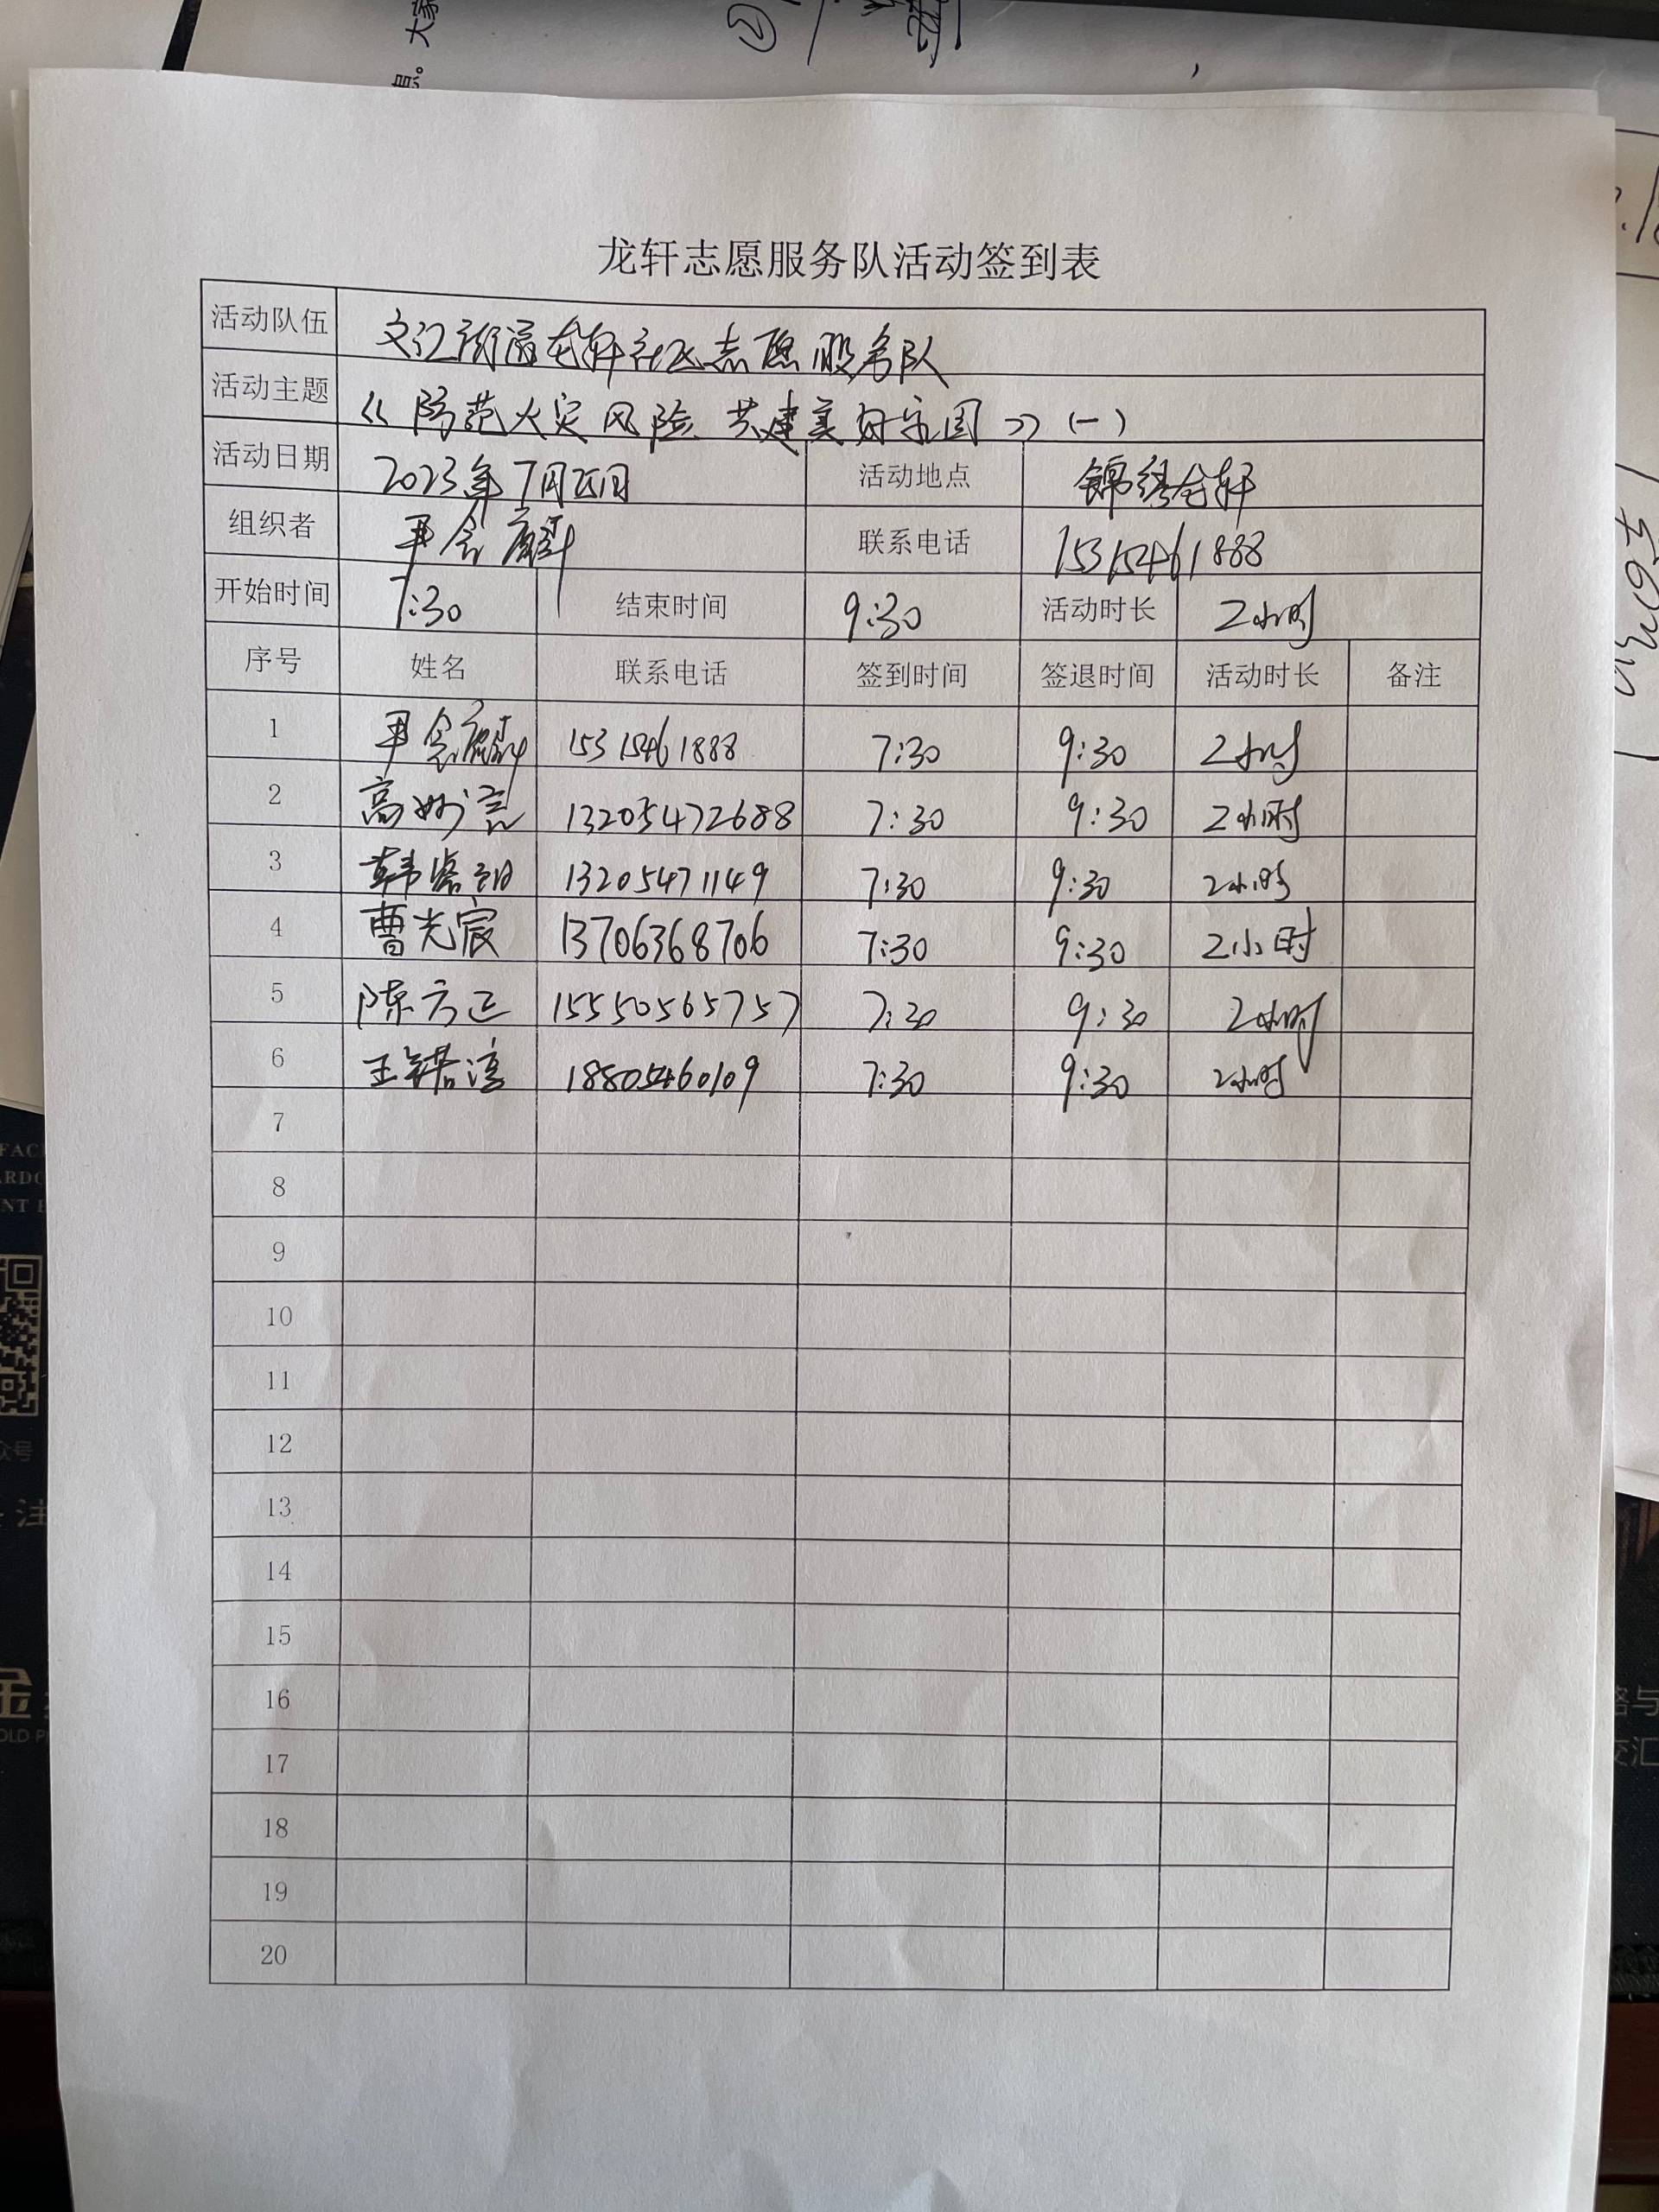 龙轩志愿服务队活动签到表
活动队伍 文汇街道龙轩社区志愿服务队
活动主题 《防范火灾风险 共建美好家园》(一)
活动日期 2023年7月 日 活动地点 锦绣龙轩
组织者 联系电话 15315461888
开始时间 7:30 结束时间 9:30 活动时长 2小时
序号 姓名 联系电话 签到时间 签退时间 活动时长 备注
1 15315461888 7:30 9:30 2小时
2 高妙言 13205472688 7:30 9:30 2小时
3 韩 13205471149 7:30 9:30 2小时
4 曹光宸 13706368706 7:30 9:30 2小时
5 陈方正 15550565757 7:30 9:30 2小时
6 王 淳 18805460109 7:30 9:30 2小时
7
8
9
10
11
12
13
14
15
16
17
18
19
20